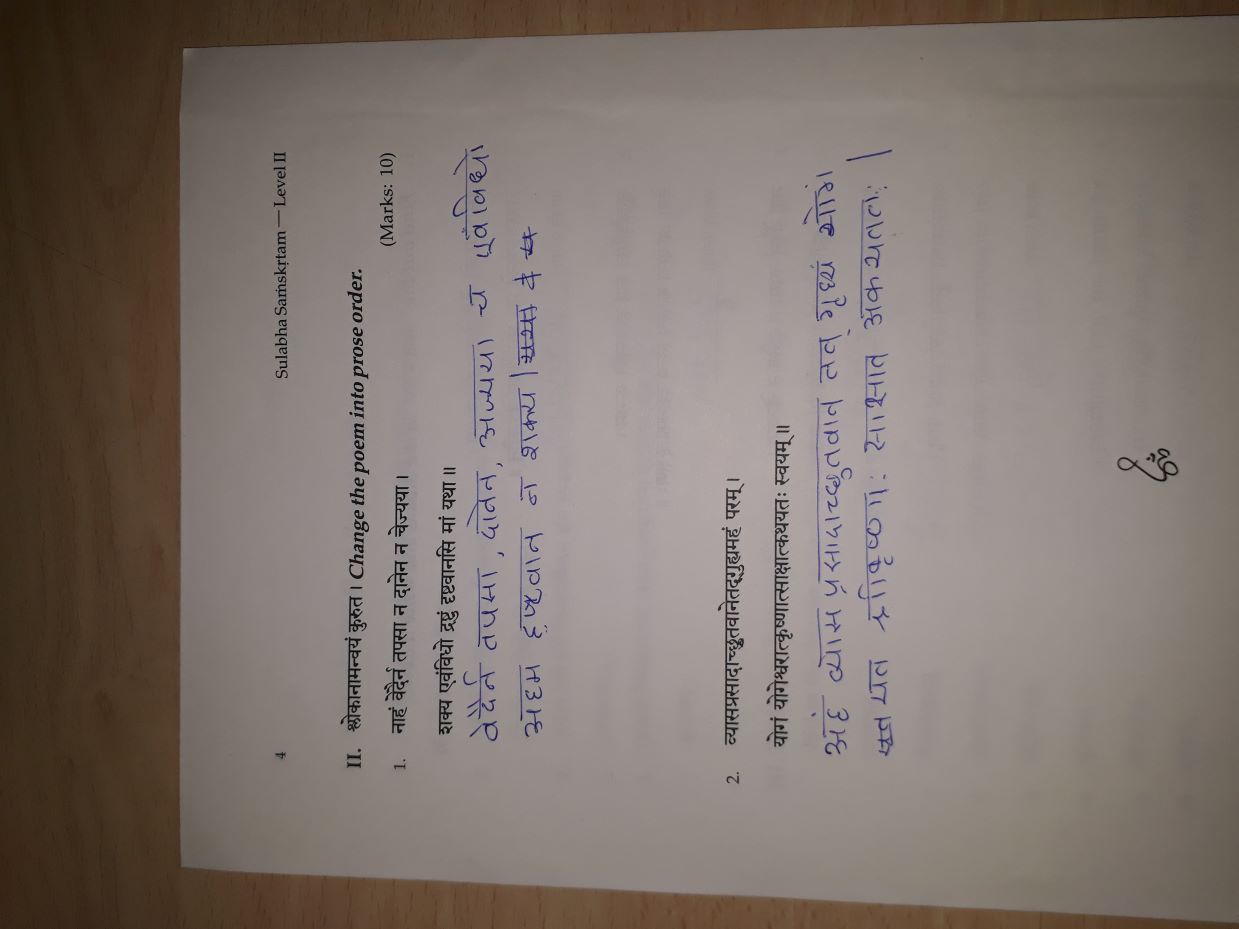 4
Sulabha Saṁskṛtam — Level II
II. श्लोकानामन्वयं कुरुत । Change the poem into prose order.
(Marks: 10)
1. नाहं वेदैर्न तपसा न दानेन न चेज्यया ।
शक्य एवंविधो द्रष्टुं दृष्टवानसि मां यथा ॥
वेदैर्न तपसा , दानेन, अज्यया च एवंविधो
अहम दृष्टवान न शक्य |
2. व्यासप्रसादाच्छ्रुतवानेतद्गुह्यमहं परम् ।
योगं योगेश्वरात्कृष्णात्साक्षात्कथयतः स्वयम् ॥
अहं व्यास प्रसादाच्छुतवान तत् गृध्यं योगं
यत श्रीकृष्णा: साक्षात अंकयतत: |
ॐ